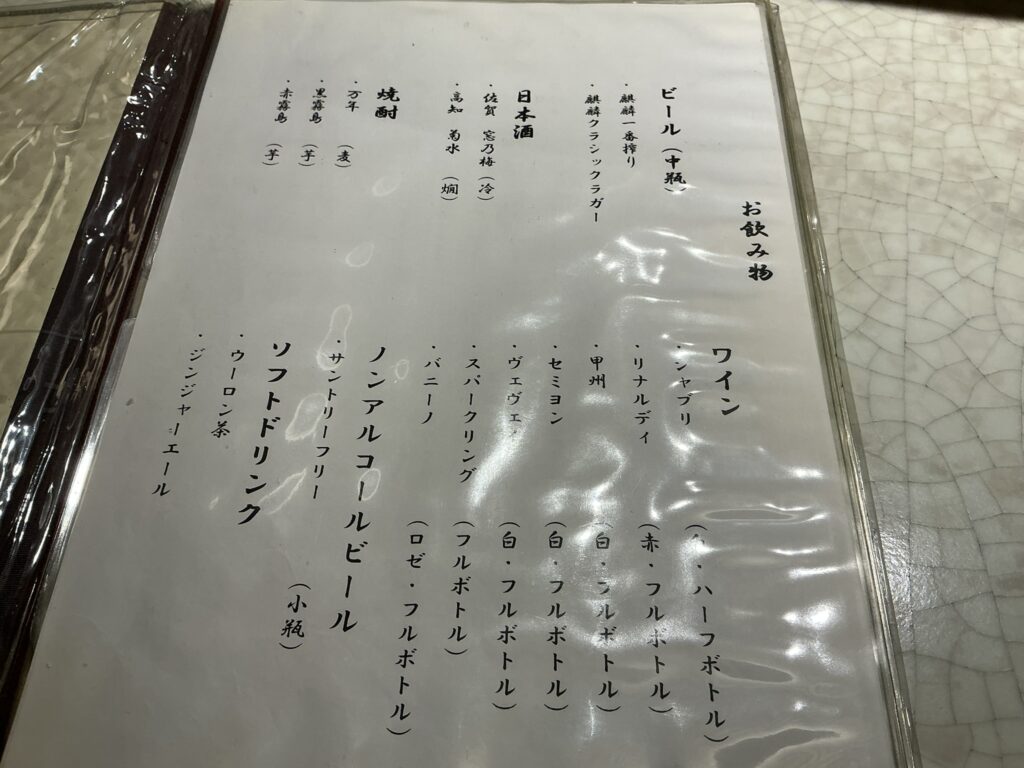 お飲み物
ビール（中瓶）
・麒麟一番搾り
・麒麟クラシックラガー
日本酒
・佐賀 窓乃梅（冷）
・高知 菊水（燗）
焼酎
・万年（麦）
・黒霧島（芋）
・赤霧島（芋）
ワイン
・シャブリ（・ハーフボトル）
・リナルディ（赤・フルボトル）
・甲州（白・フルボトル）
・セミヨン（白・フルボトル）
・ヴェヴェ（白・フルボトル）
・スパークリング（フルボトル）
・バニーノ（ロゼ・フルボトル）
ノンアルコールビール
・サントリーフリー（小瓶）
ソフトドリンク
・ウーロン茶
・ジンジャーエール